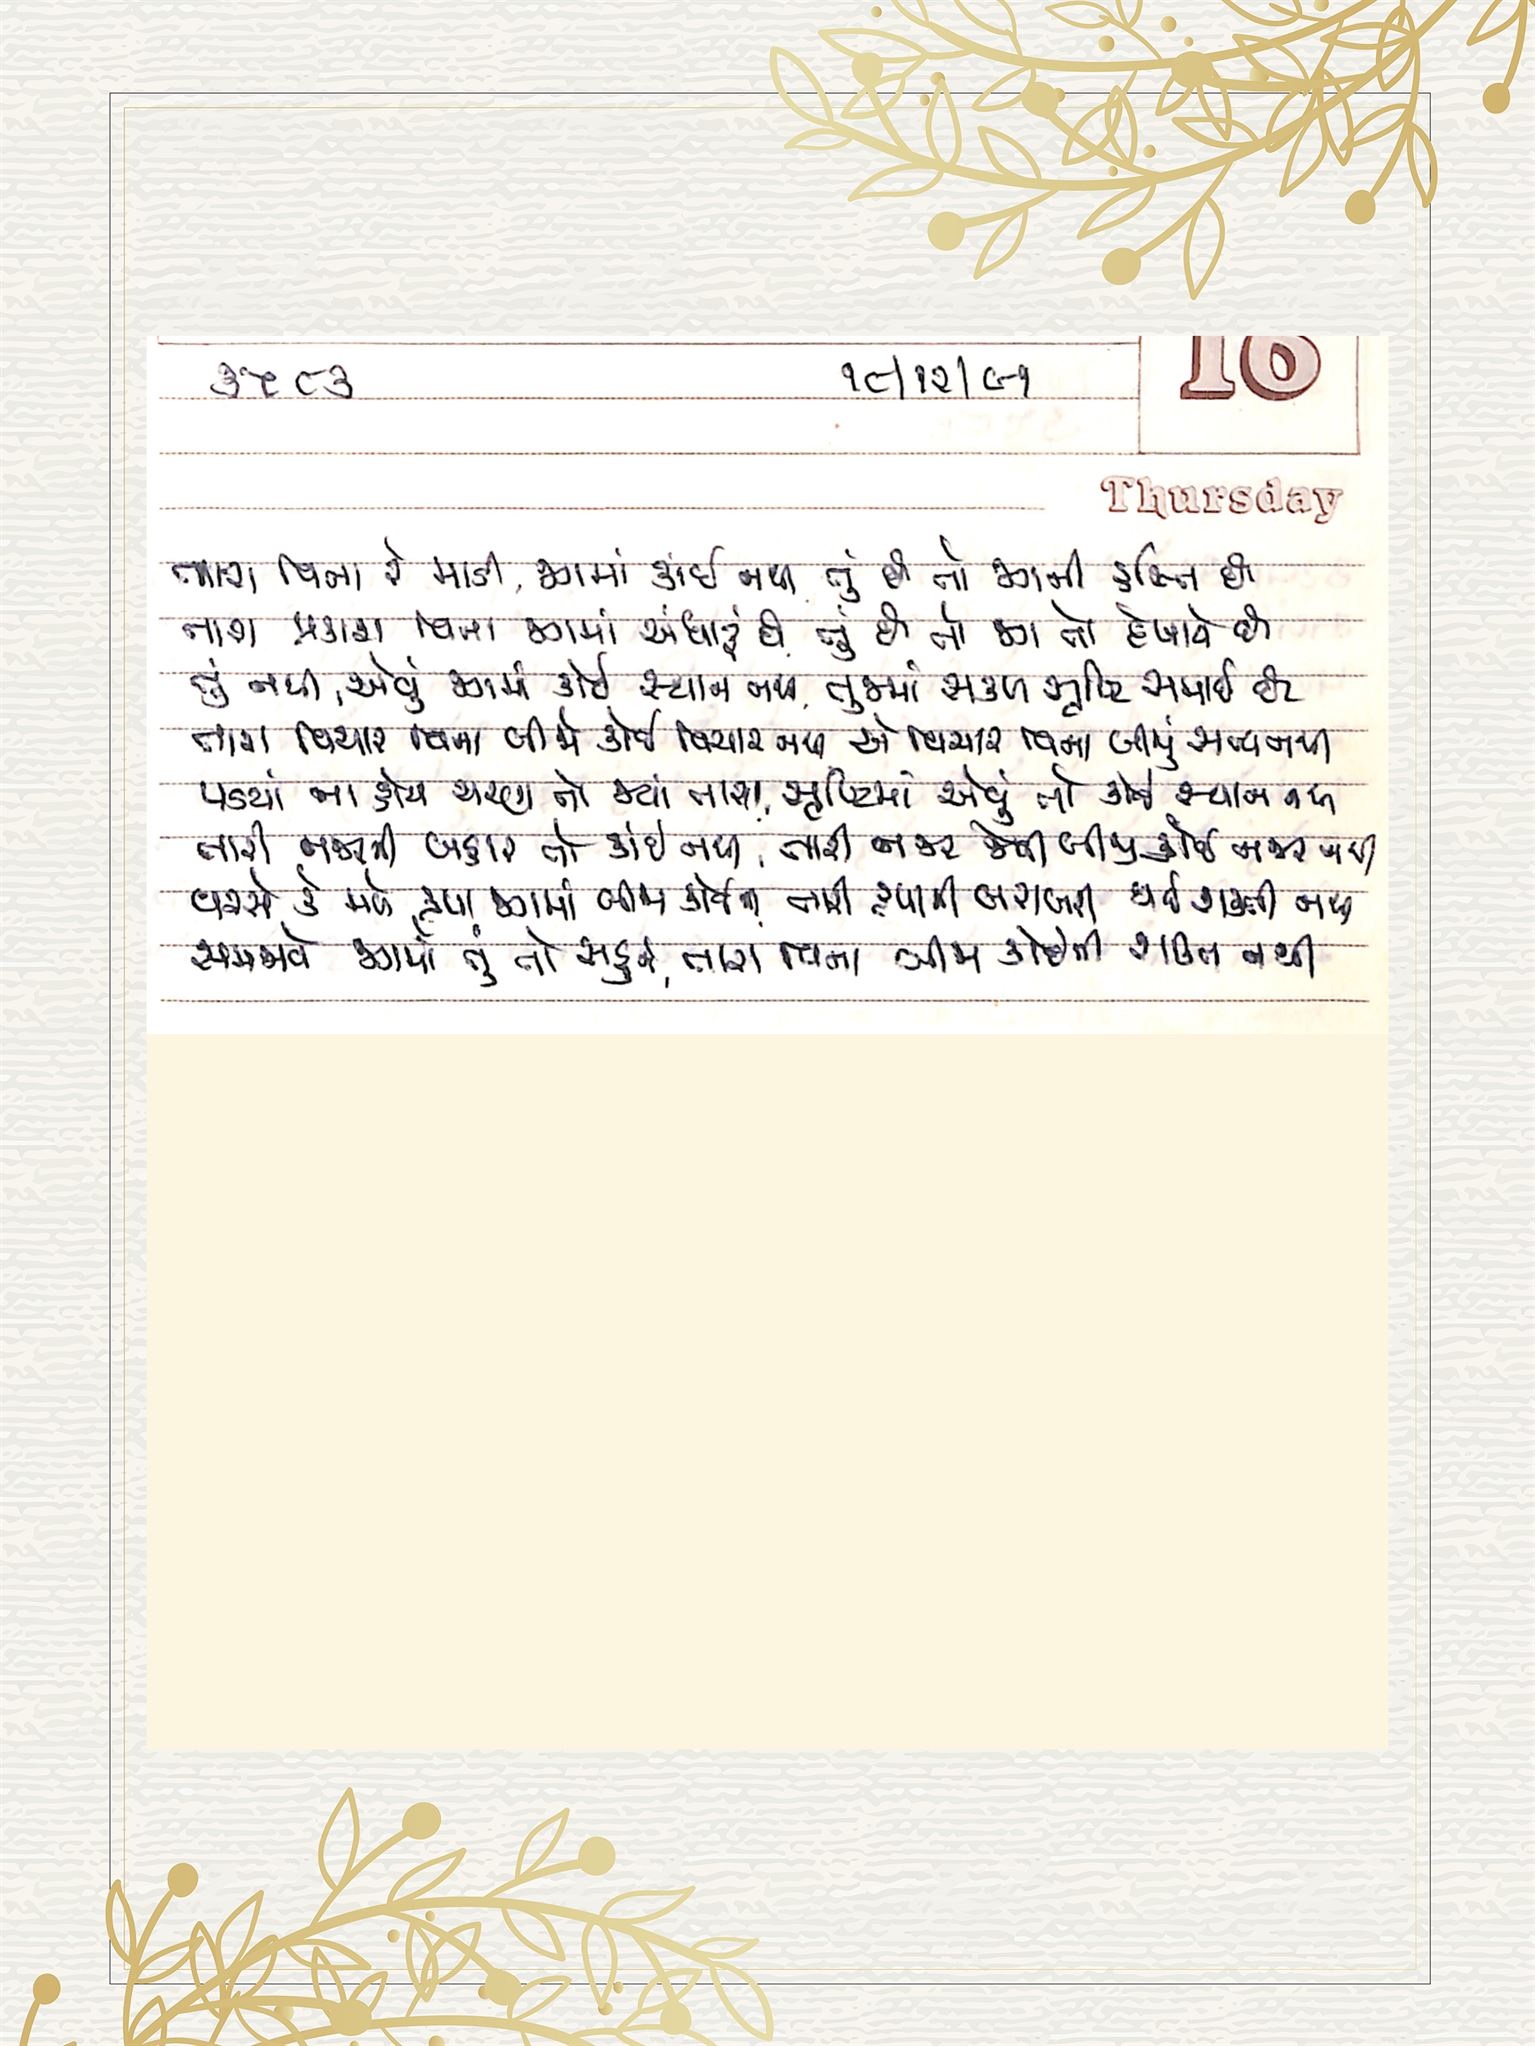 ૩૫૮૩ ૧૮/૧૨/૯૧ 16
Thursday
તારા વિના રે માડી, જગમાં કાંઈ નથી, તું છે તો જગની હસ્તિ છે
તારા પ્રકાશ વિના જગમાં અંધારું છે, તું છે તો જગ તો દેખાવે છે
તું નથી, એવું જગમાં કોઈ સ્થાન નથી, તુજમાં સકળ સૃષ્ટિ સમાઈ છે
તારા વિચાર વિના બીજો કોઈ વિચાર નથી, એ વિચાર વિના બીજું સત્ય નથી
પડયાં ના હોય ચરણ તો જ્યાં તારા, સૃષ્ટિમાં એવું તો કોઈ સ્થાન નથી
તારી નજરની બહાર તો કાંઈ નથી, તારી નજર જેવી બીજી કોઈ નજર નથી
વરસે કે મળે કૃપા જગમાં બીજા કોઈની, તારી કૃપાની બરાબરી થઈ શક્તી નથી
સમજાવે જગમાં તું તો સહુને, તારા વિના બીજા કોઈની શક્તિ નથી